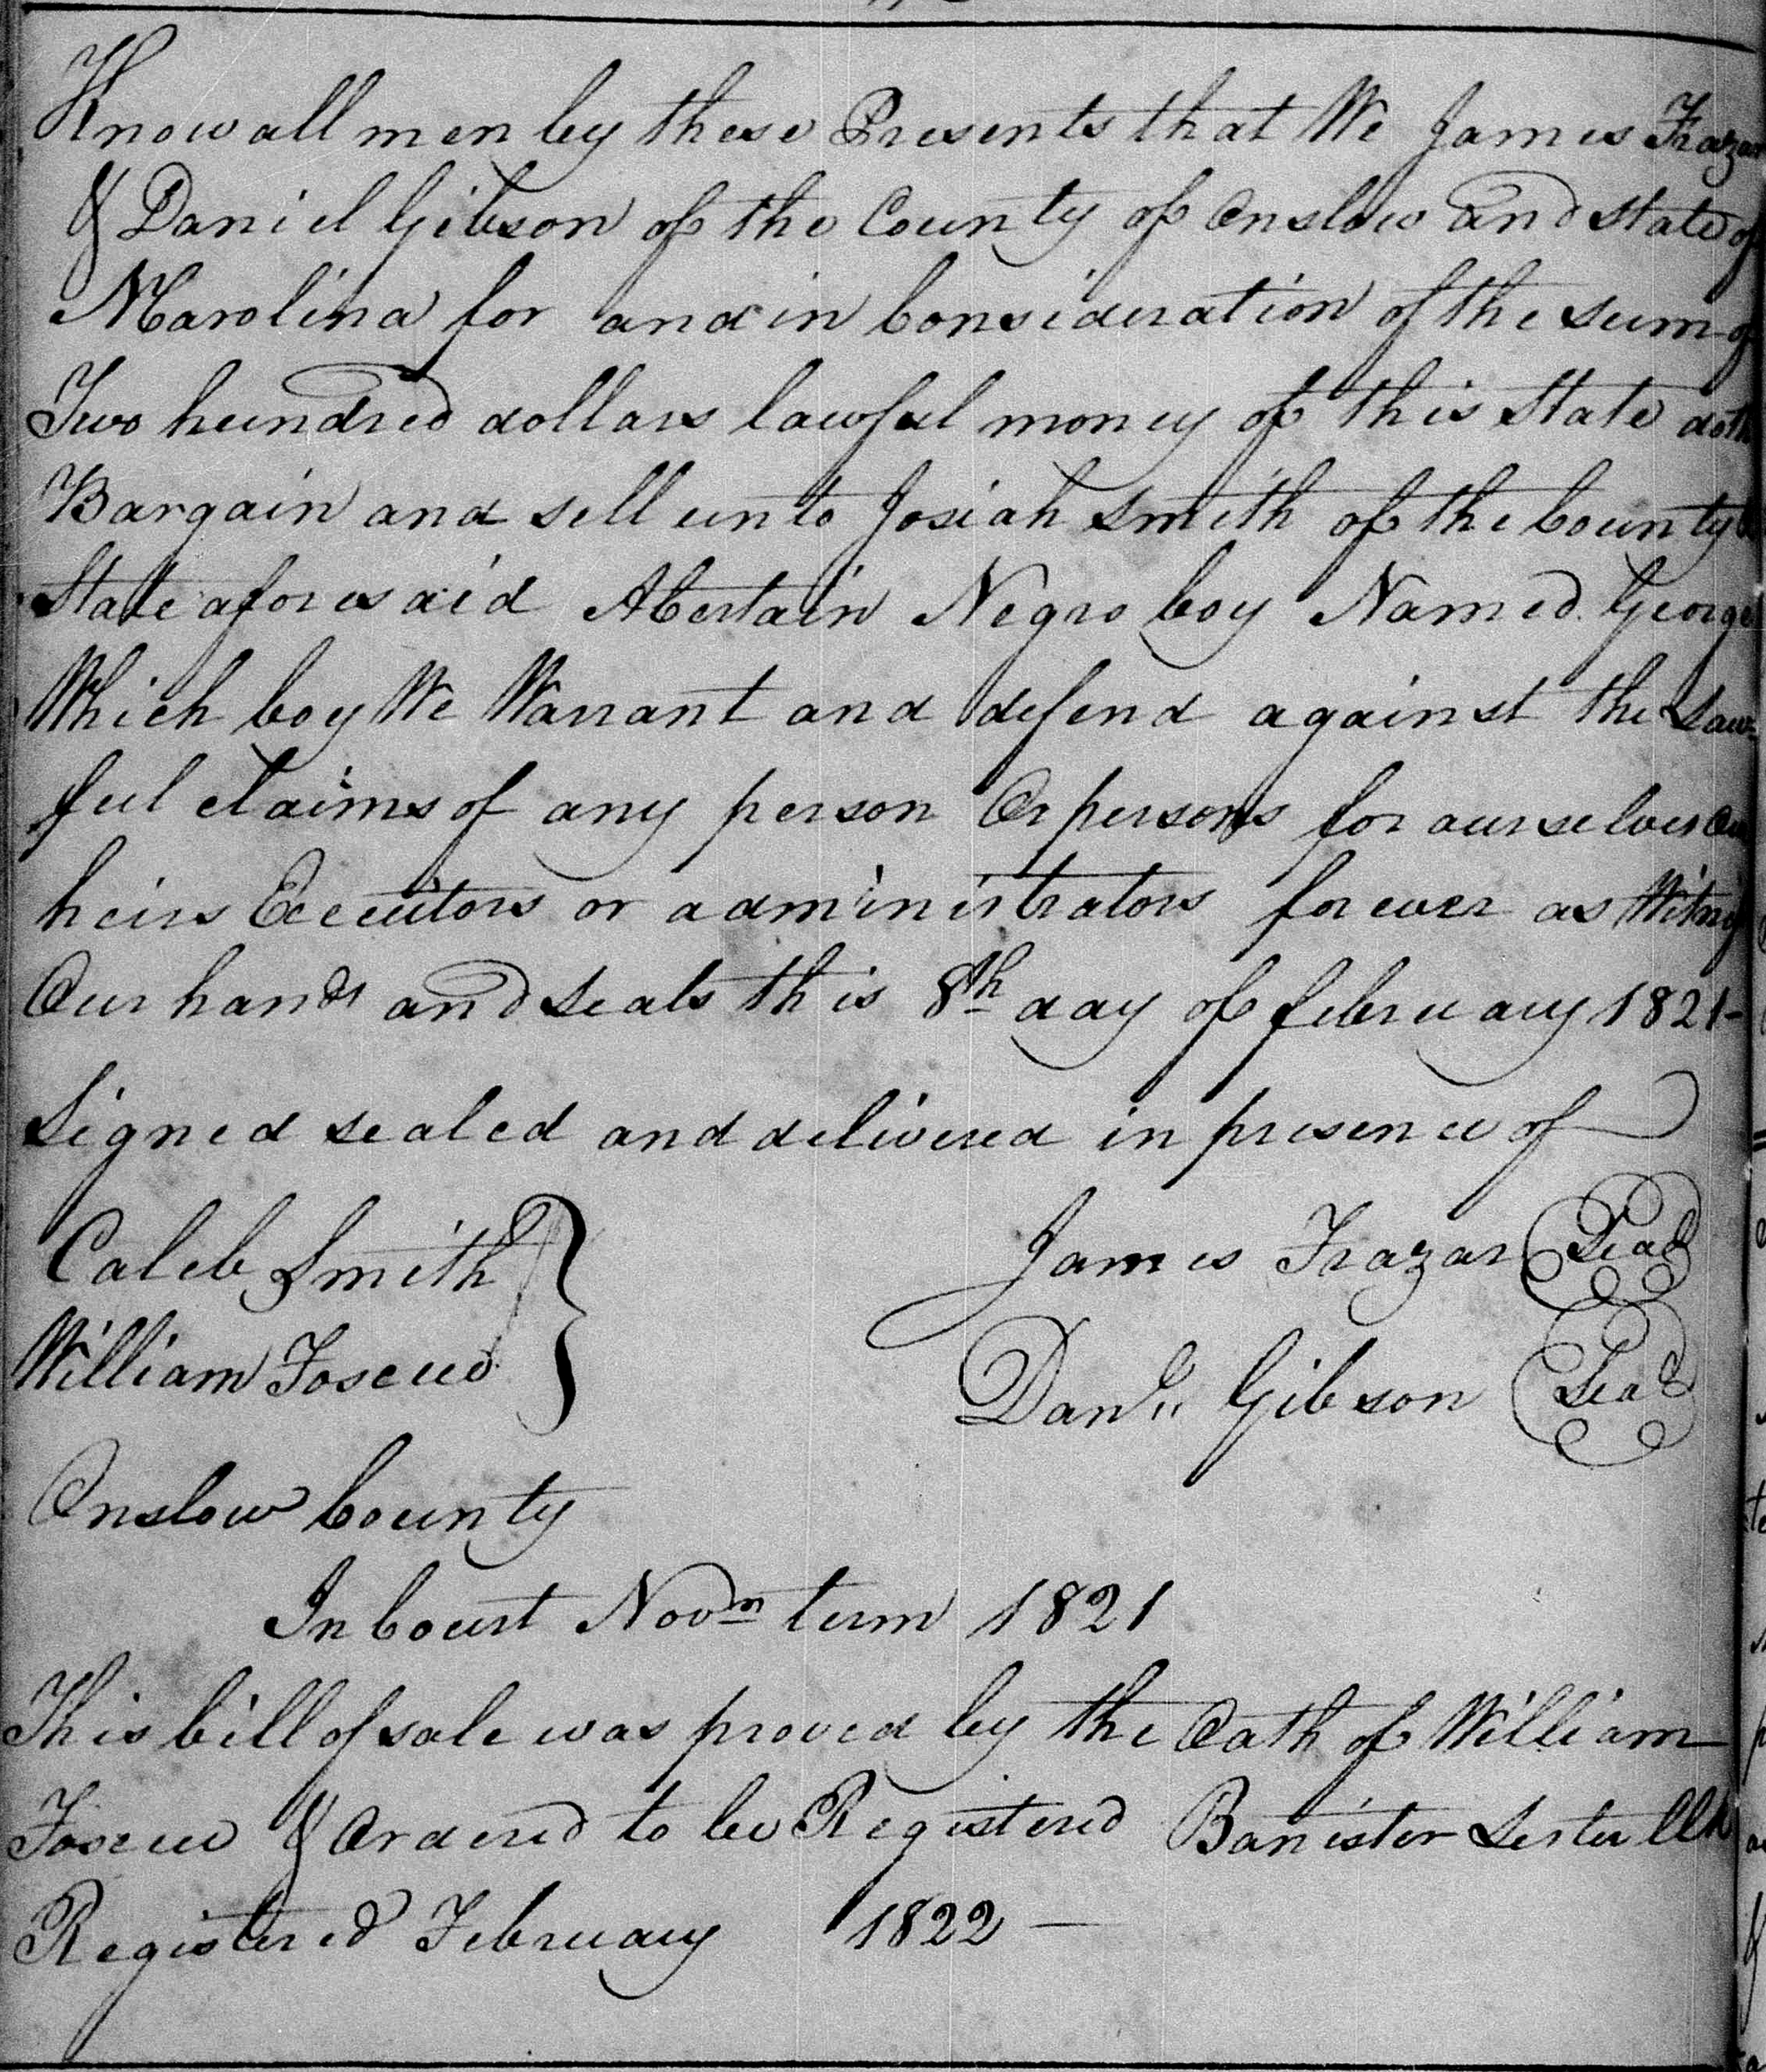 Know all men by these Presents that We James Frazar
& Daniel Gibson of the County of Onslow and State of
N Carolina for and in Consideration of the sum of
Two hundred dollars lawful money of this State doth
Bargain and sell unto Josiah Smith of the County &
State aforesaid A Certain Negro boy Named George
Which boy We Warrant and defend against the Law=
ful claims of any person Or persons for ourselves Our
heirs Executors or administrators for ever as Witness
Our hands and seals this 8th day of february 1821-
Signed sealed and delivered in presence of
Caleb Smith
James Frazar Seal
William Foscue
Danll Gibson Seal
Onslow County
In Court Novm term 1821
This bill of sale was proved by the Oath of William
Foscue & Ordered to be Registered Banister Lester Clk
Registered February 1822 —